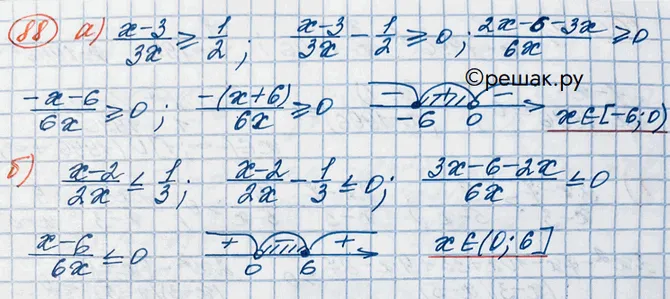 88 а) (x-3)/(3x) ≥ 1/2; (x-3)/(3x) - 1/2 ≥ 0; (2x-6-3x)/(6x) ≥ 0
©решак.ру
(-x-6)/(6x) ≥ 0; (-(x+6))/(6x) ≥ 0 - + - -6 0 x∈[-6;0)
б) (x-2)/(2x) ≤ 1/3; (x-2)/(2x) - 1/3 ≤ 0; (3x-6-2x)/(6x) ≤ 0
(x-6)/(6x) ≤ 0 + - + 0 6 x∈(0;6]